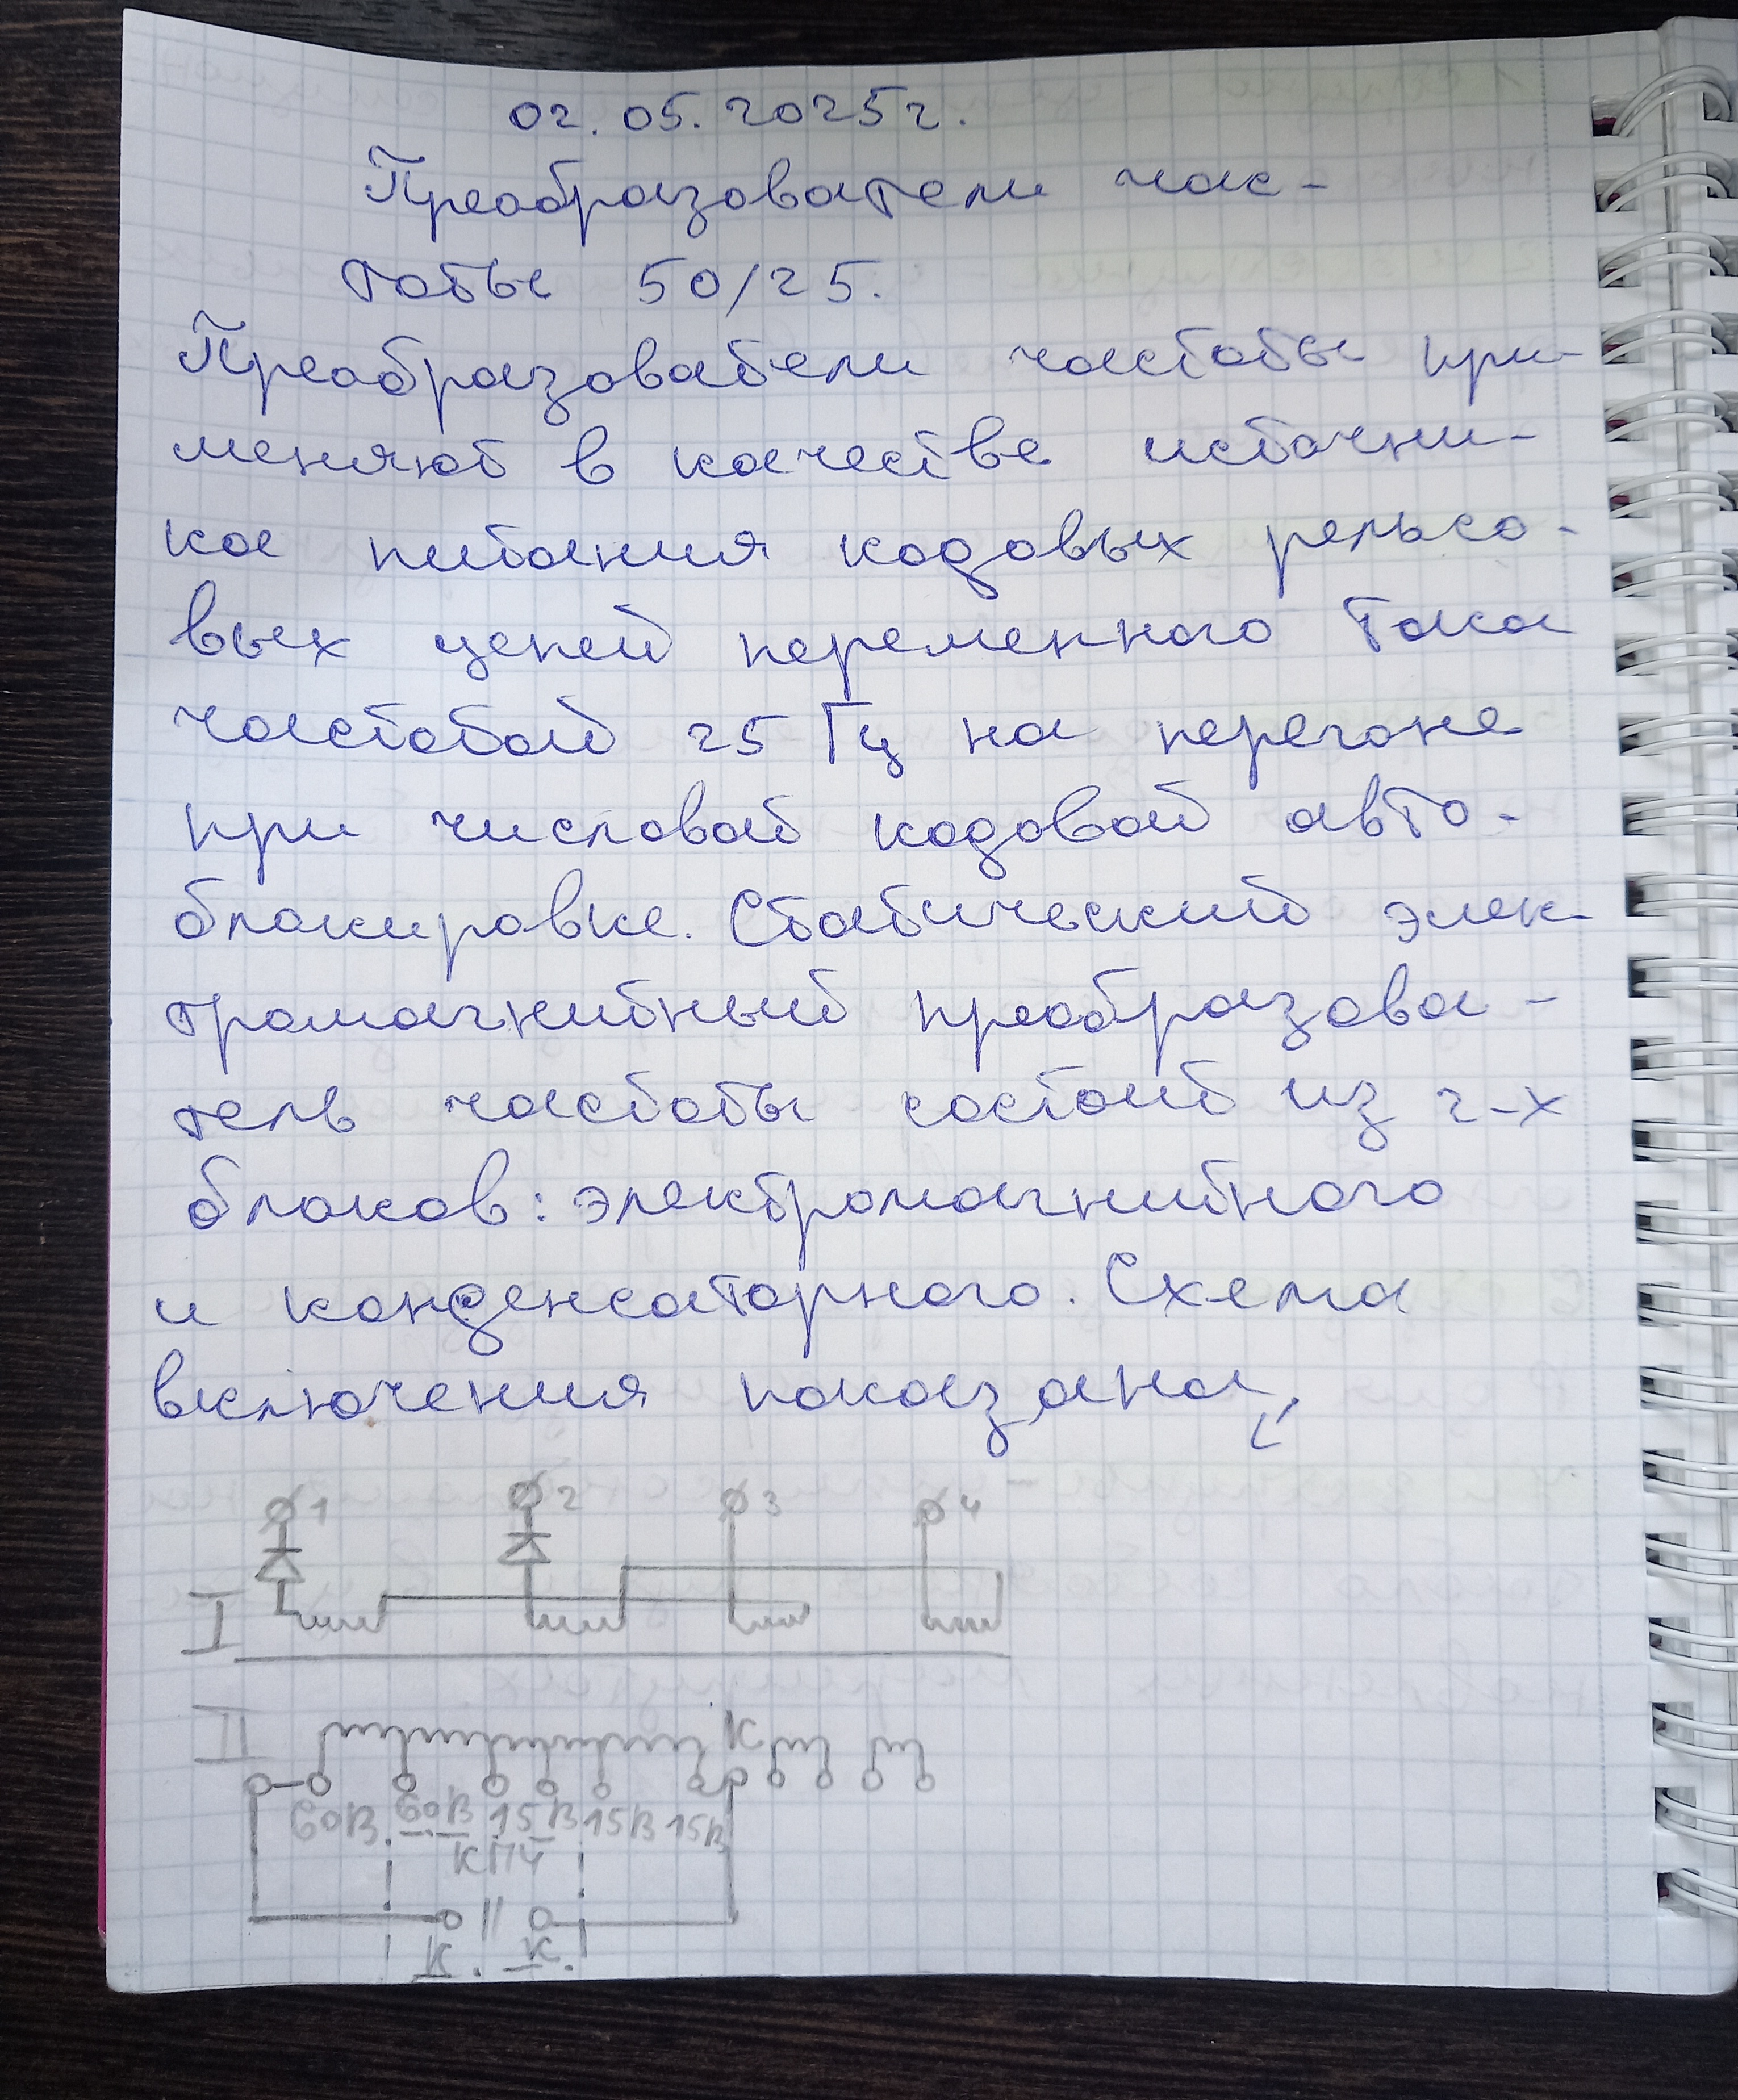 02. 05. 2025г.
Преобразователи час-
тоты 50/25.
Преобразователи частоты при-
меняют в качестве источни-
ка питания кодовых рельсо-
вых цепей переменного тока
частотой 25 Гц на перегоне
при числовой кодовой авто-
блокировке. Статический элек-
тромагнитный преобразова-
тель частоты состоит из 2-х
блоков: электромагнитного
и конденсаторного. Схема
включения показана
1 2 3 4
I
II К
60В 60В 15В 15В 15В
КПЧ
К К